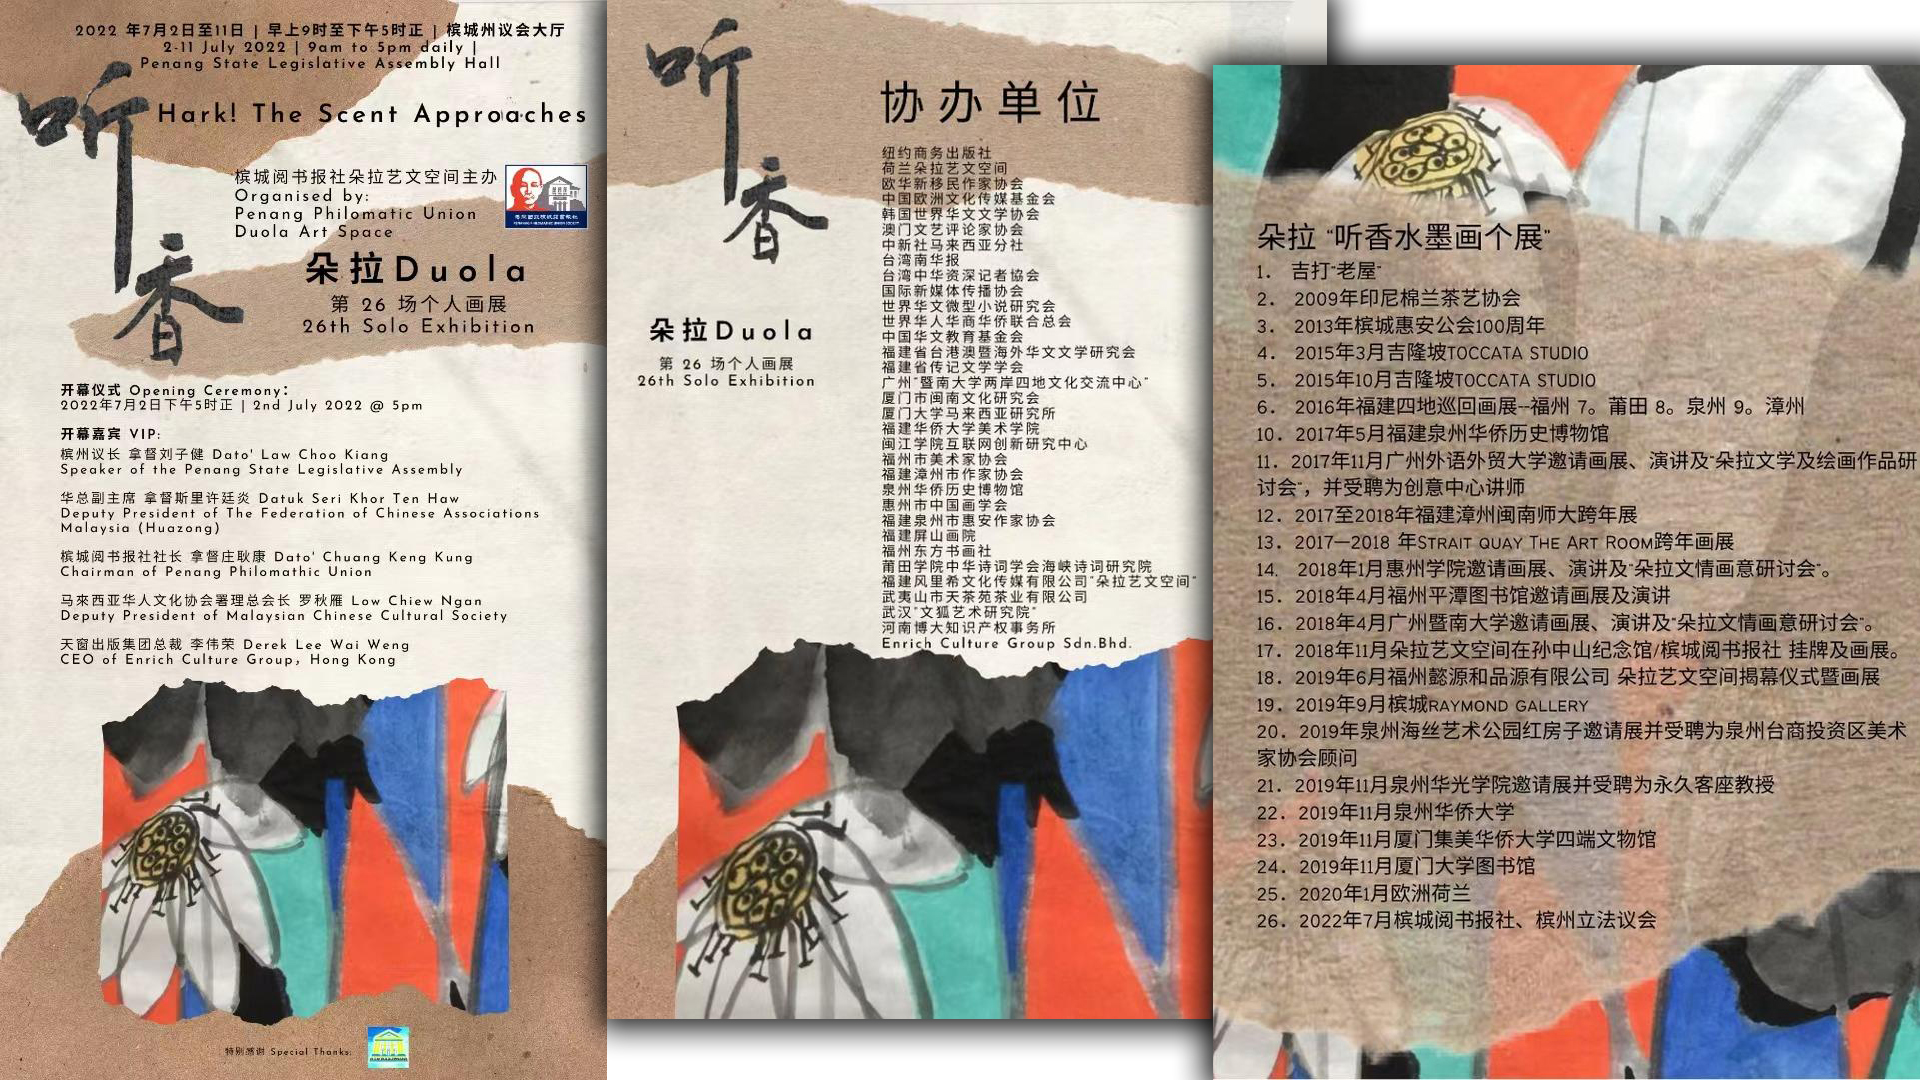 2022 年7月2日至11日 | 早上9时至下午5时正 | 槟城州议会大厅
2-11 July 2022 | 9am to 5pm daily |
Penang State Legislative Assembly Hall
听香
Hark! The Scent Approaches
槟城阅书报社朵拉艺文空间主办
Organised by:
Penang Philomatic Union
Duola Art Space
朵拉Duola
第 26 场个人画展
26th Solo Exhibition
开幕仪式 Opening Ceremony:
2022年7月2日下午5时正 | 2nd July 2022 @ 5pm
开幕嘉宾 VIP:
槟州议长 拿督刘子健 Dato' Law Choo Kiang
Speaker of the Penang State Legislative Assembly
华总副主席 拿督斯里许廷炎 Datuk Seri Khor Ten Haw
Deputy President of The Federation of Chinese Associations
Malaysia (Huazong)
槟城阅书报社社长 拿督庄耿康 Dato' Chuang Keng Kung
Chairman of Penang Philomathic Union
马来西亚华人文化协会署理总会长 罗秋雁 Low Chiew Ngan
Deputy President of Malaysian Chinese Cultural Society
天窗出版集团总裁 李伟荣 Derek Lee Wai Weng
CEO of Enrich Culture Group, Hong Kong
特别感谢 Special Thanks:
听香
朵拉Duola
第 26 场个人画展
26th Solo Exhibition
协办单位
纽约商务出版社
荷兰朵拉艺文空间
欧华新移民作家协会
中国欧洲文化传媒基金会
韩国世界华文文学协会
澳门文艺评论家协会
中新社马来西亚分社
台湾南华报
台湾中华资深记者協会
国际新媒体传播协会
世界华文微型小说研究会
世界华人华商华侨联合总会
中国华文教育基金会
福建省台港澳暨海外华文文学研究会
福建省传记文学学会
广州"暨南大学两岸四地文化交流中心"
厦门市闽南文化研究会
厦门大学马来西亚研究所
福建华侨大学美术学院
闽江学院互联网创新研究中心
福州市美术家协会
福建漳州市作家协会
泉州华侨历史博物馆
惠州市中国画学会
福建泉州市惠安作家协会
福建屏山画院
福州东方书画社
莆田学院中华诗词学会海峡诗词研究院
福建风里希文化传媒有限公司"朵拉艺文空间"
武夷山市天茶苑茶业有限公司
武汉"文狐艺术研究院"
河南博大知识产权事务所
Enrich Culture Group Sdn.Bhd.
朵拉 "听香水墨画个展"
1. 吉打"老屋"
2. 2009年印尼棉兰茶艺协会
3. 2013年槟城惠安公会100周年
4. 2015年3月吉隆坡TOCCATA STUDIO
5. 2015年10月吉隆坡TOCCATA STUDIO
6. 2016年福建四地巡回画展--福州 7。莆田 8。泉州 9。漳州
10. 2017年5月福建泉州华侨历史博物馆
11. 2017年11月广州外语外贸大学邀请画展、演讲及"朵拉文学及绘画作品研
讨会"，并受聘为创意中心讲师
12. 2017至2018年福建漳州闽南师大跨年展
13. 2017—2018 年STRAIT QUAY THE ART ROOM跨年画展
14. 2018年1月惠州学院邀请画展、演讲及"朵拉文情画意研讨会"。
15. 2018年4月福州平潭图书馆邀请画展及演讲
16. 2018年4月广州暨南大学邀请画展、演讲及"朵拉文情画意研讨会"。
17. 2018年11月朵拉艺文空间在孙中山纪念馆/槟城阅书报社 挂牌及画展。
18. 2019年6月福州懿源和品源有限公司 朵拉艺文空间揭幕仪式暨画展
19. 2019年9月槟城RAYMOND GALLERY
20. 2019年泉州海丝艺术公园红房子邀请展并受聘为泉州台商投资区美术
家协会顾问
21. 2019年11月泉州华光学院邀请展并受聘为永久客座教授
22. 2019年11月泉州华侨大学
23. 2019年11月厦门集美华侨大学四端文物馆
24. 2019年11月厦门大学图书馆
25. 2020年1月欧洲荷兰
26. 2022年7月槟城阅书报社、槟州立法议会